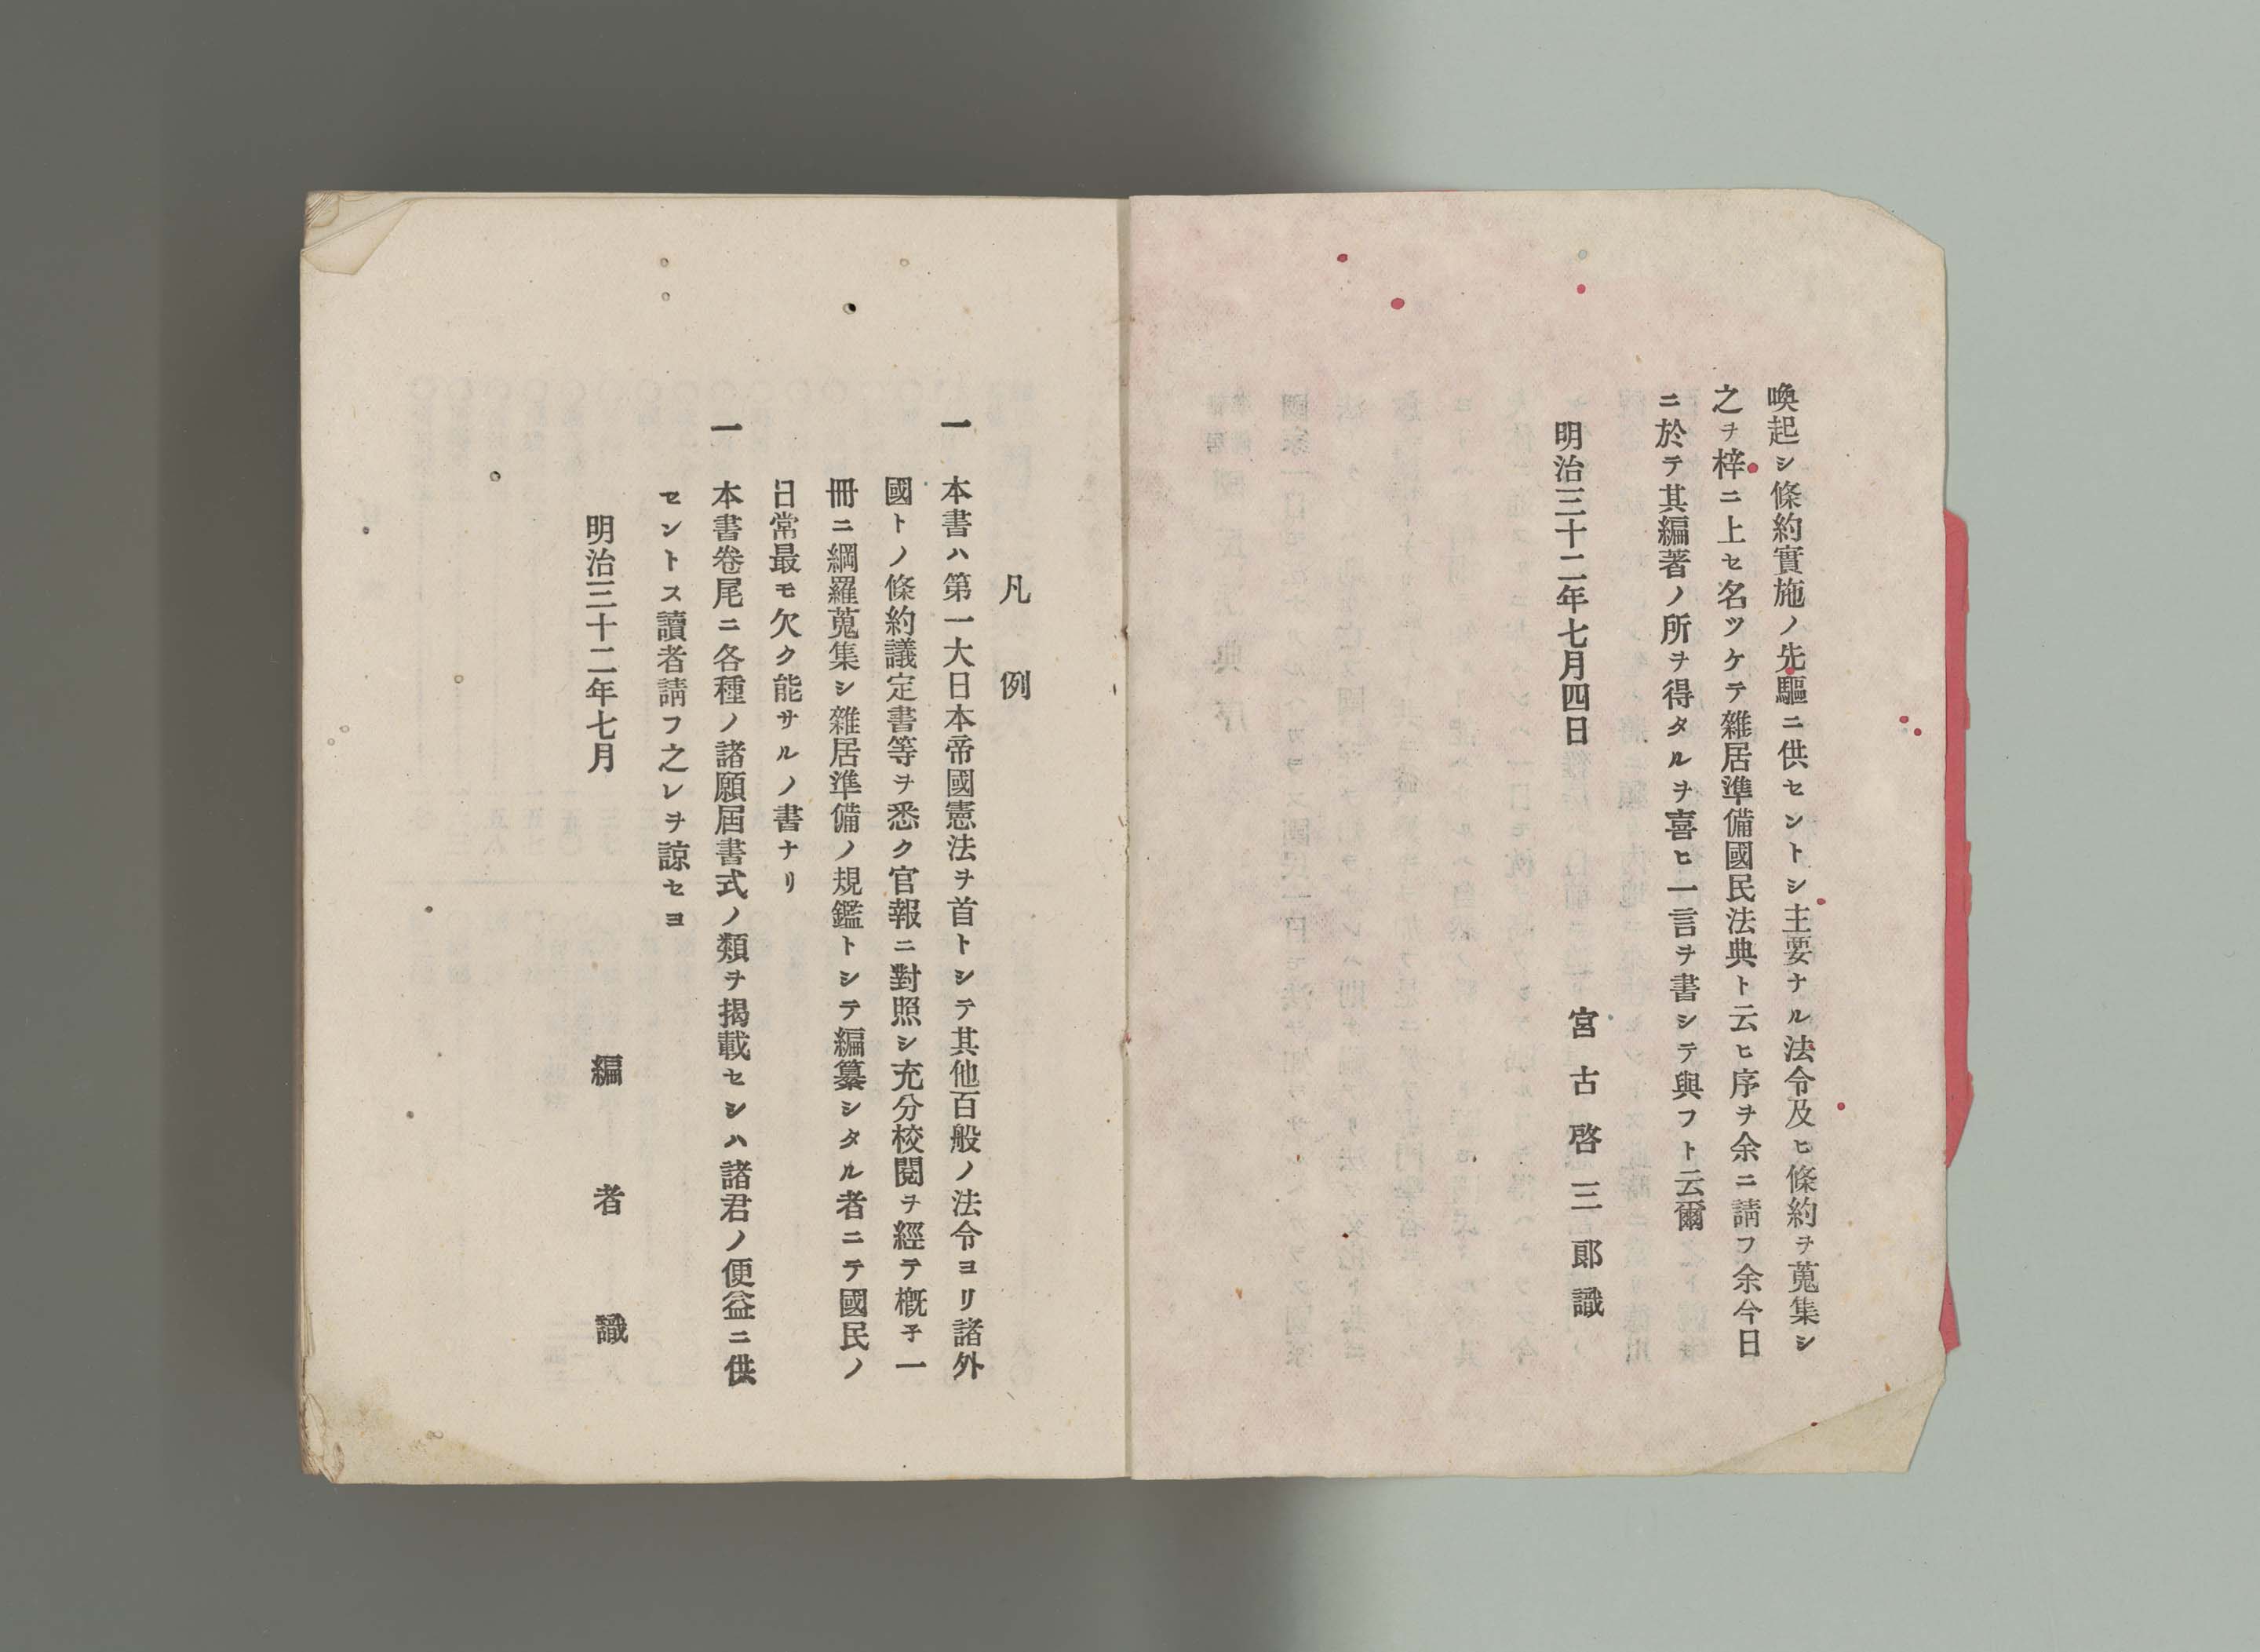 喚起シ條約實施ノ先驅ニ供セントシ主要ナル法令及ヒ條約ヲ蒐集シ
之ヲ梓ニ上セ名ツケテ雜居準備國民法典ト云ヒ序ヲ余ニ請フ余今日
ニ於テ其編著ノ所ヲ得タルヲ喜ヒ一言ヲ書シテ與フト云爾
明治三十二年七月四日
宮古啓三郎識
凡例
一 本書ハ第一大日本帝國憲法ヲ首トシテ其他百般ノ法令ヨリ諸外
國トノ條約議定書等ヲ悉ク官報ニ對照シ充分校閲ヲ經テ槪子一
冊ニ綱羅蒐集シ雜居準備ノ規鑑トシテ編纂シタル者ニテ國民ノ
日常最モ欠ク能サルノ書ナリ
一 本書卷尾ニ各種ノ諸願屆書式ノ類ヲ揭載セシハ諸君ノ便益ニ供
セントス讀者請フ之レヲ諒セヨ
明治三十二年七月
編者識